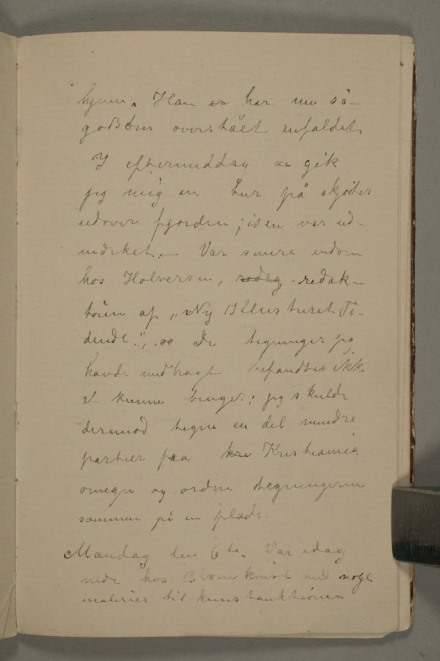 hjem. Han har nu så-
godt som overstået anfaldet.
I eftermiddag gik
jeg mig en tur på skøiter
udover fjorden; isen var ud-
mærket. Var senere indom
hos Halvorsen, redak-
tøren af "Ny Illustreret Ti-
dende". De tegninger jeg
havde medbragt befandtes ikke
at kunne bruges; jeg skulde
derimod tegne en del mindre
partier fra Kristiania
omegn og ordne tegningerne
sammen på en plade.
Mandag den 6te. Var idag
nede hos Blomkvist med nogle
malerier til kunstauktionen